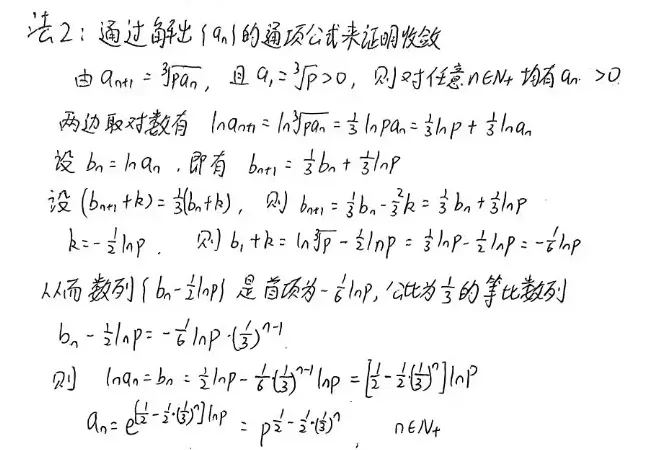 法2：通过解出{aₙ}的通项公式来证明收敛
由 aₙ₊₁ = ∛(paₙ)，且 a₁ = ∛p > 0，则对任意 n∈N₊ 均有 aₙ > 0
两边取对数有 lnaₙ₊₁ = ln∛(paₙ) = 1/3 lnpaₙ = 1/3 lnp + 1/3 lnaₙ
设 bₙ = lnaₙ，即有 bₙ₊₁ = 1/3 bₙ + 1/3 lnp
设 (bₙ₊₁+k) = 1/3(bₙ+k)，则 bₙ₊₁ = 1/3 bₙ - 2/3 k = 1/3 bₙ + 1/3 lnp
k = -1/2 lnp．则 b₁+k = ln∛p - 1/2 lnp = 1/3 lnp - 1/2 lnp = -1/6 lnp
从而数列{bₙ - 1/2 lnp}是首项为 -1/6 lnp，公比为 1/3 的等比数列
bₙ - 1/2 lnp = -1/6 lnp·(1/3)ⁿ⁻¹
则 lnaₙ = bₙ = 1/2 lnp - 1/6·(1/3)ⁿ⁻¹ lnp = [1/2 - 1/2·(1/3)ⁿ] lnp
aₙ = e^{[1/2 - 1/2·(1/3)ⁿ] lnp} = p^{1/2 - 1/2·(1/3)ⁿ}，n∈N₊